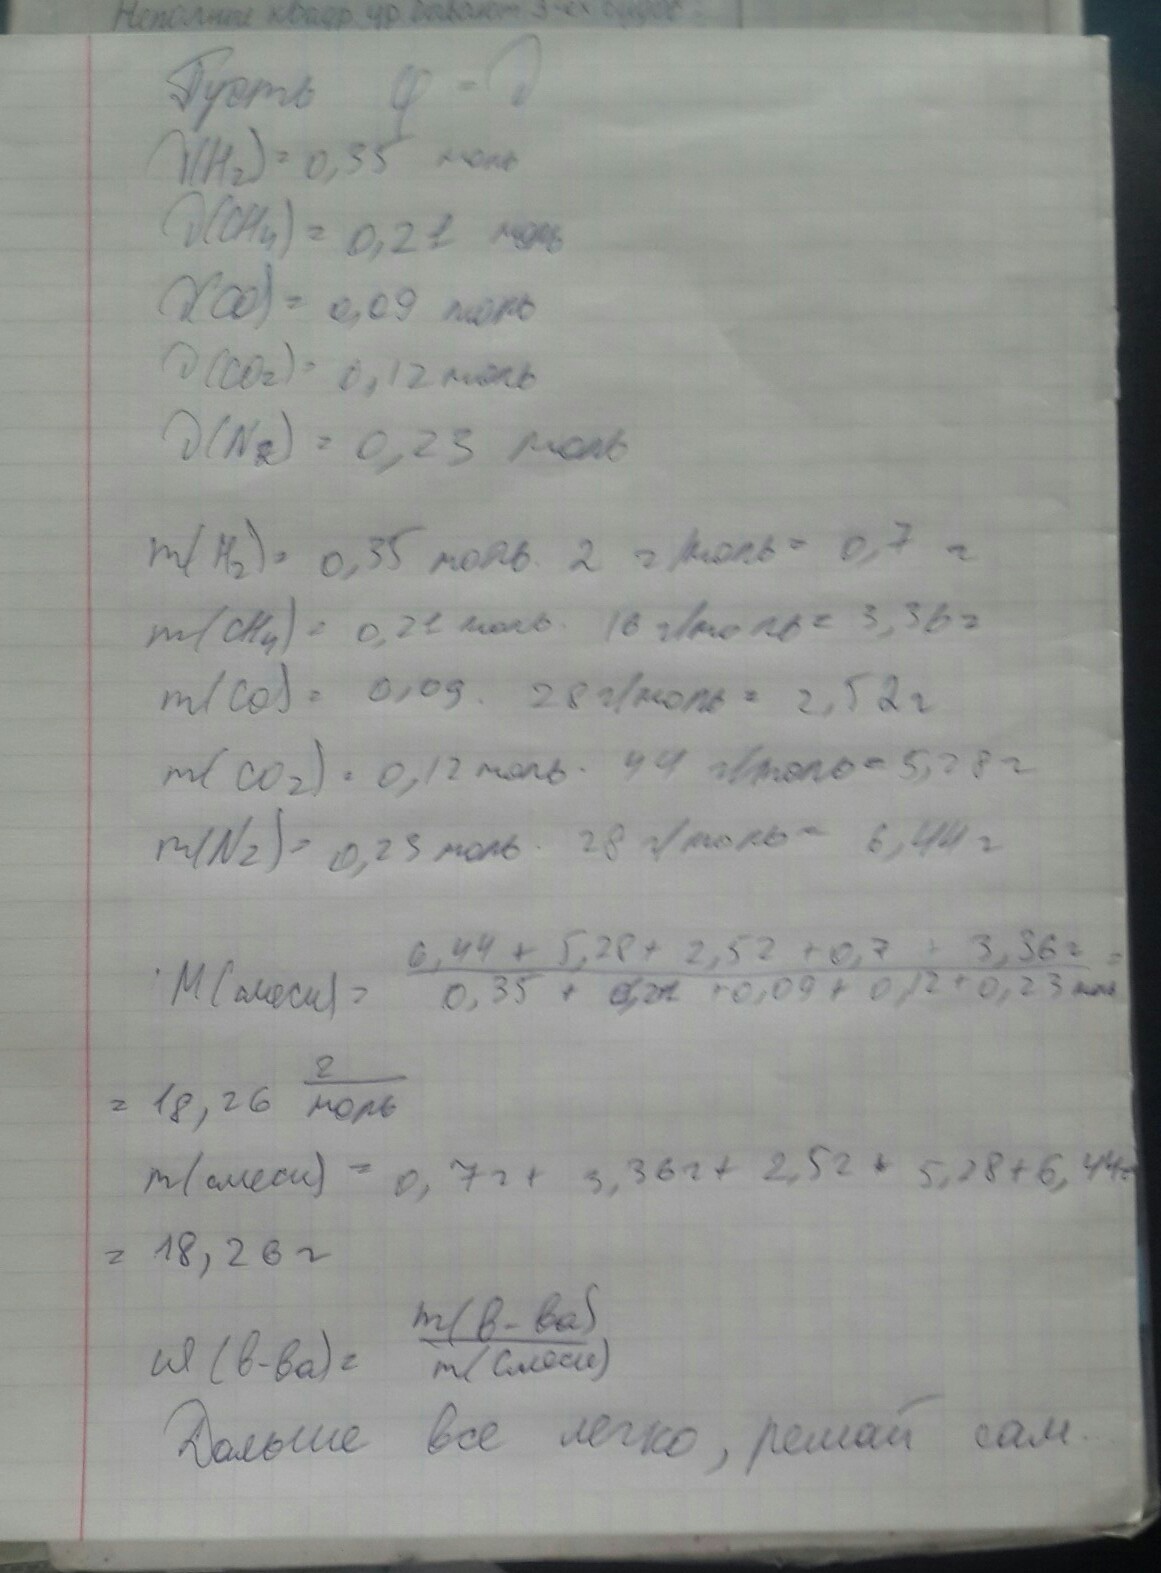 Неполные квадр. ур. бывают 3-ех видов
Пусть φ = ν
ν(H₂) = 0,35 моль
ν(CH₄) = 0,21 моль
ν(CO) = 0,09 моль
ν(CO₂) = 0,12 моль
ν(N₂) = 0,23 моль
m(H₂) = 0,35 моль · 2 г/моль = 0,7 г
m(CH₄) = 0,21 моль · 16 г/моль = 3,36 г
m(CO) = 0,09 · 28 г/моль = 2,52 г
m(CO₂) = 0,12 моль · 44 г/моль = 5,28 г
m(N₂) = 0,23 моль · 28 г/моль = 6,44 г
M(смеси) = 6,44 + 5,28 + 2,52 + 0,7 + 3,36 г / 0,35 + 0,21 + 0,09 + 0,12 + 0,23 моль =
= 18,26 г/моль
m(смеси) = 0,7 г + 3,36 г + 2,5 г + 5,28 + 6,44 г
= 18,26 г
ω(в-ва) = m(в-ва) / m(смеси)
Дальше все легко, решай сам.